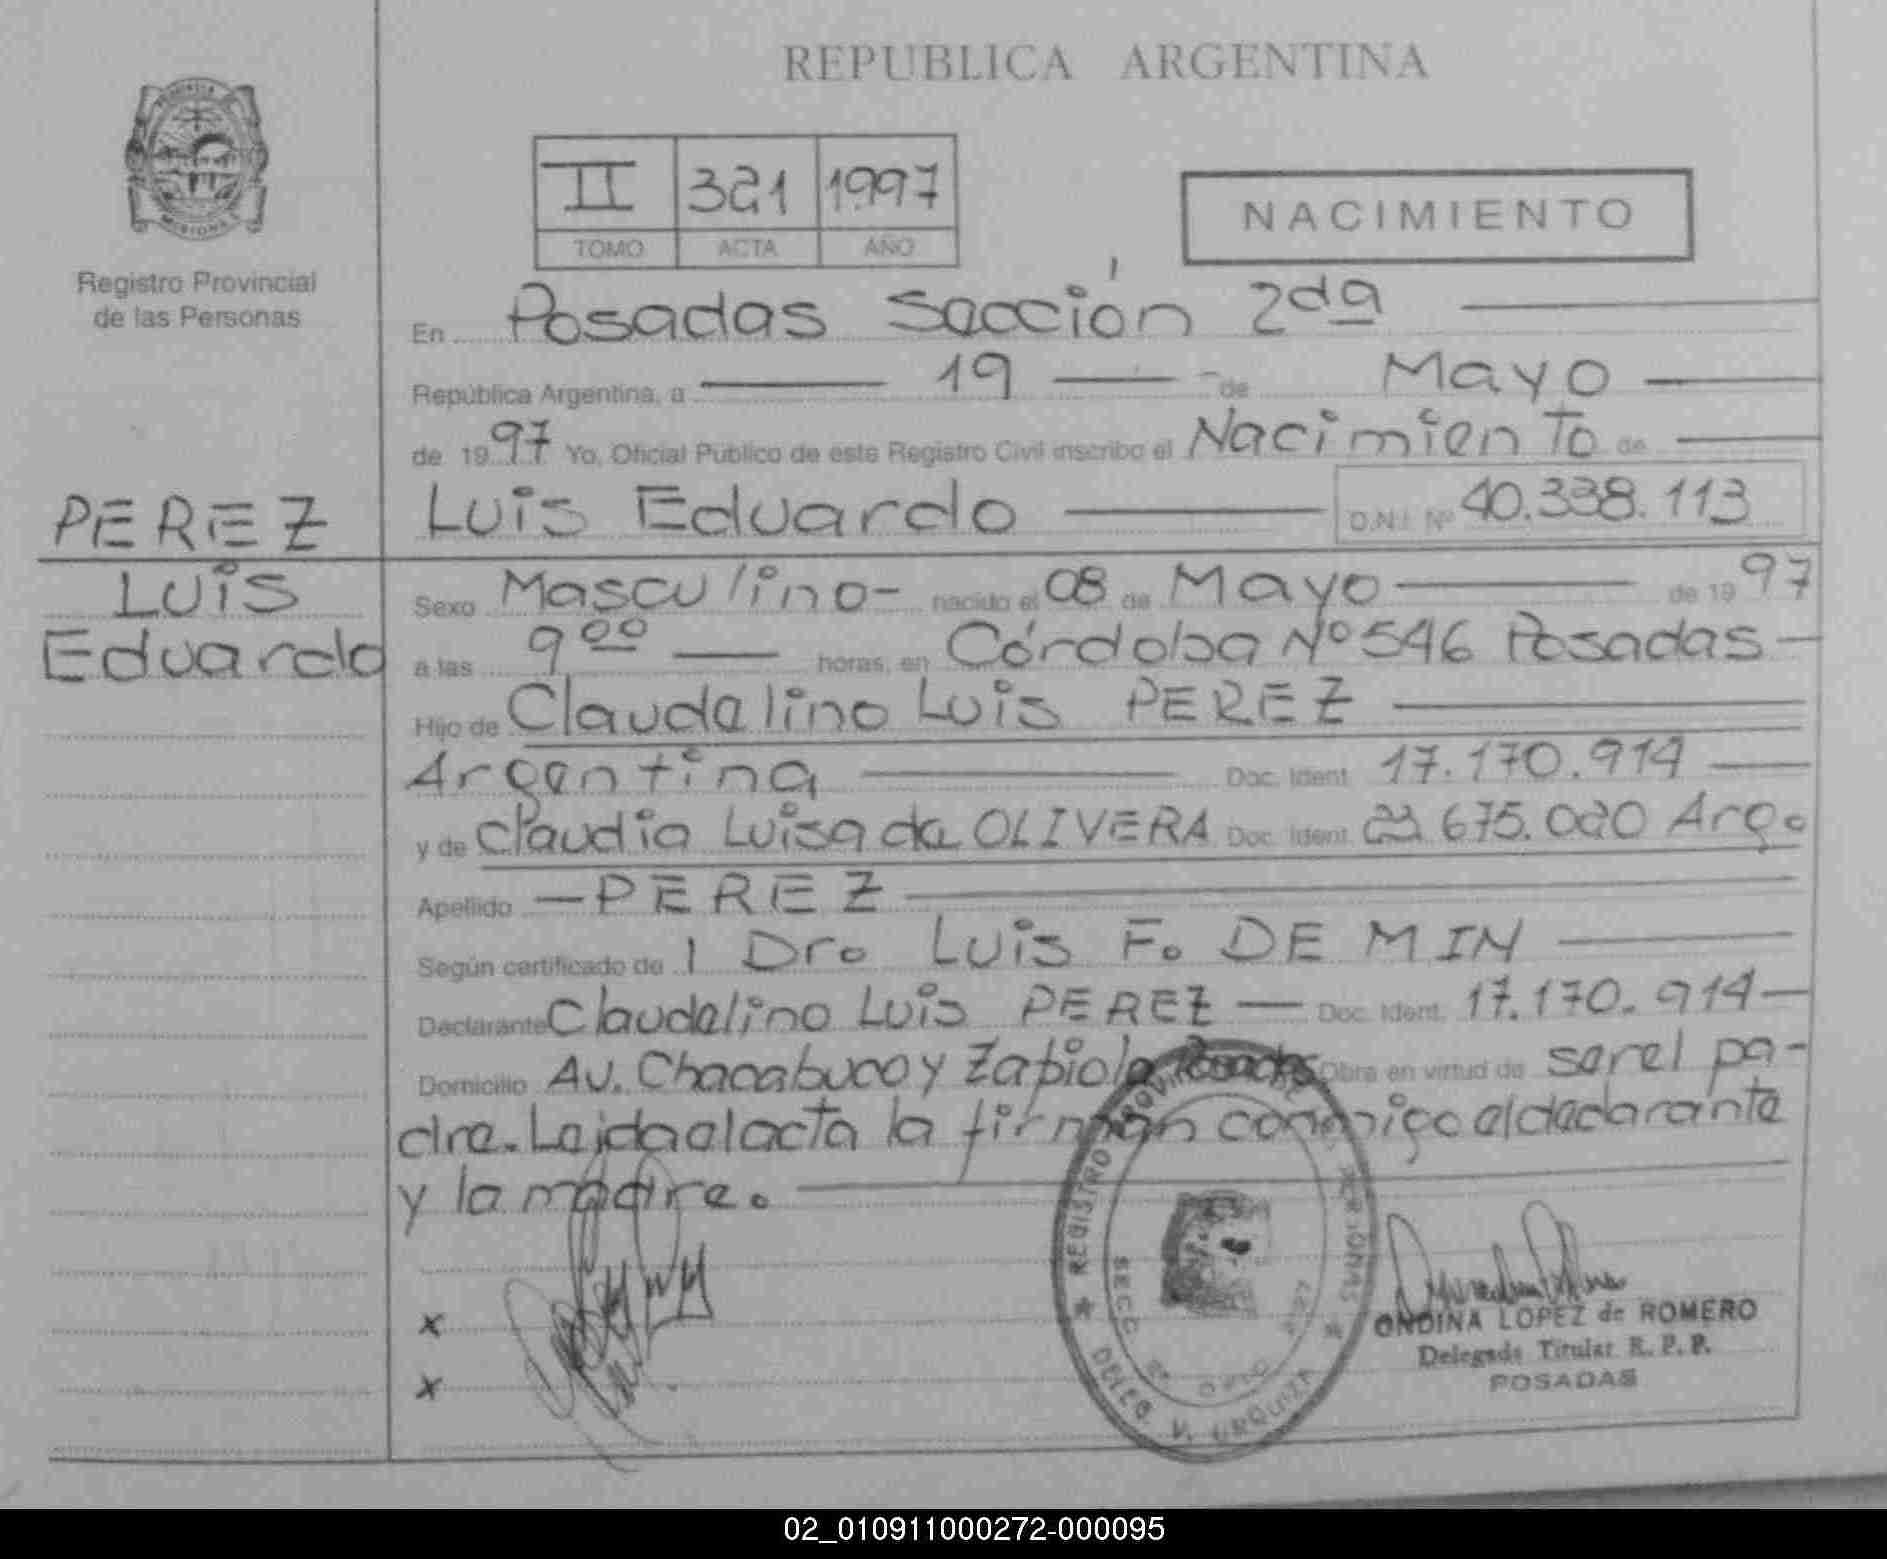 REPUBLICA ARGENTINA
PROVINCIA
MISIONES
Registro Provincial
de las Personas
II 321 1997
TOMO ACTA AÑO
NACIMIENTO
En Posadas Sección 2da
República Argentina, a 19 de Mayo
de 1997 Yo, Oficial Público de este Registro Civil inscribo el Nacimiento de
PEREZ
Luis Eduardo D.N.I. Nº 40.338.113
Luis
Eduardo
Sexo Masculino- nacido el 08 de Mayo de 1997
a las 9 00 horas, en Córdoba Nº 546 Posadas
Hijo de Claudelino Luis PEREZ
Argentina Doc. Ident. 17.170.914
y de Claudia Luisa de OLIVERA Doc. Ident. 675.020 Arg.
Apellido PEREZ
Según certificado de l Dr. Luis F. DE MIN
Declarante Claudelino Luis PEREZ Doc. Ident. 17.170.914
Domicilio Av. Chacabuco y Zapiola Posadas Obra en virtud de ser el pa-
dre. Leida el acta la firman conmigo el declarante
y la madre.
x
x
REGISTRO PROVINCIAL PERSONAS
DELEG. V. URQUIZA
SECC
ONDINA LOPEZ de ROMERO
Delegada Titular R. P. P.
POSADAS
02_010911000272-000095